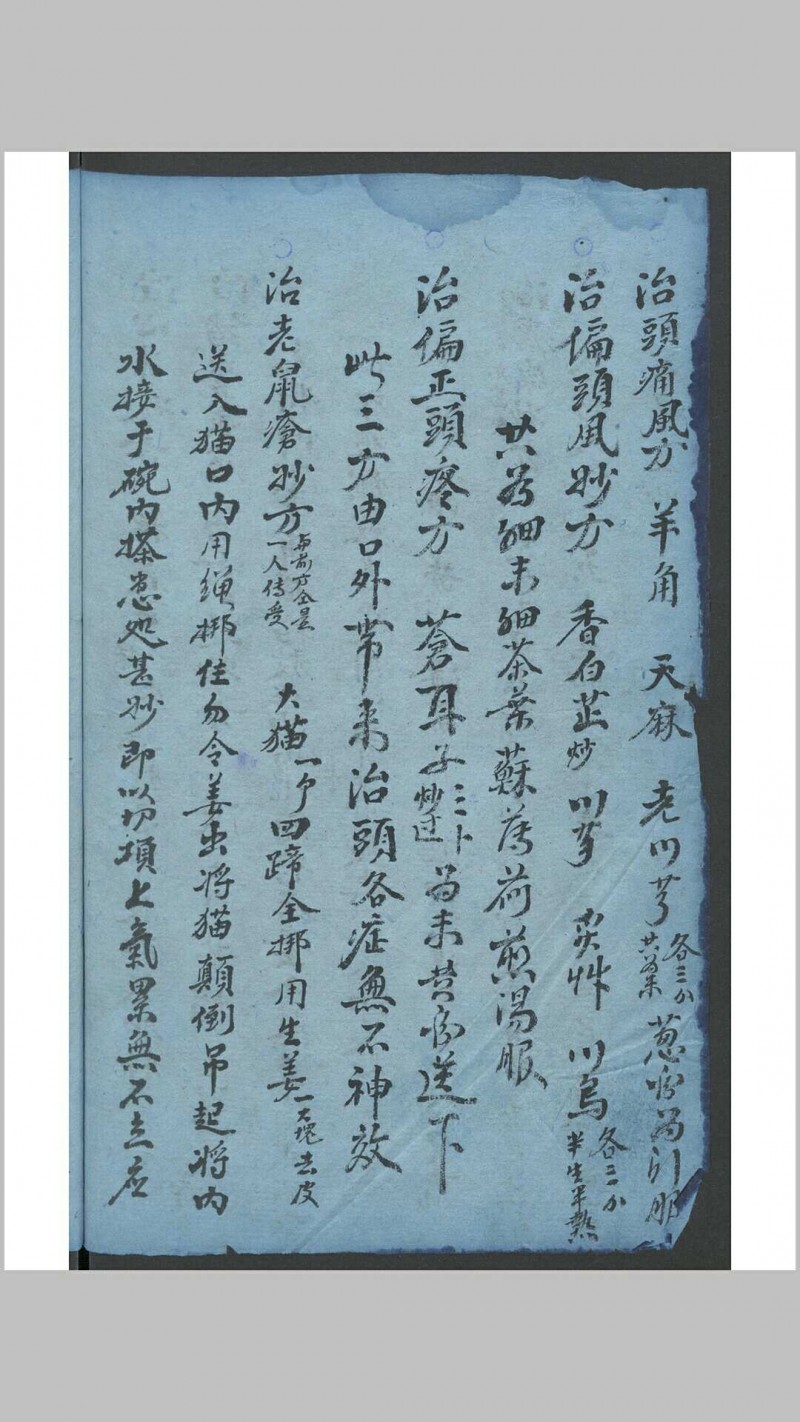 治頭痛風方 羊角 天麻 老川芎 各三分 共為末 葱湯為引服
治偏頭風妙方 香白芷炒 川芎 炙草 川烏 各三分 半生半熟
共為細末細茶葉蘇薄荷煎湯服
治偏正頭疼方 蒼耳子 三卜 炒过 为末黄酒送下
此三方由口外帶来治頭各症無不神效
治老鼠瘡妙方 与前方仝是 一人传受 大猫一个四蹄全挷用生姜一大塊去皮
送入猫口内用绳挷住勿令姜出将猫顛倒吊起将内
水接于碗内搽患处甚妙即以切項上氣累無不立应